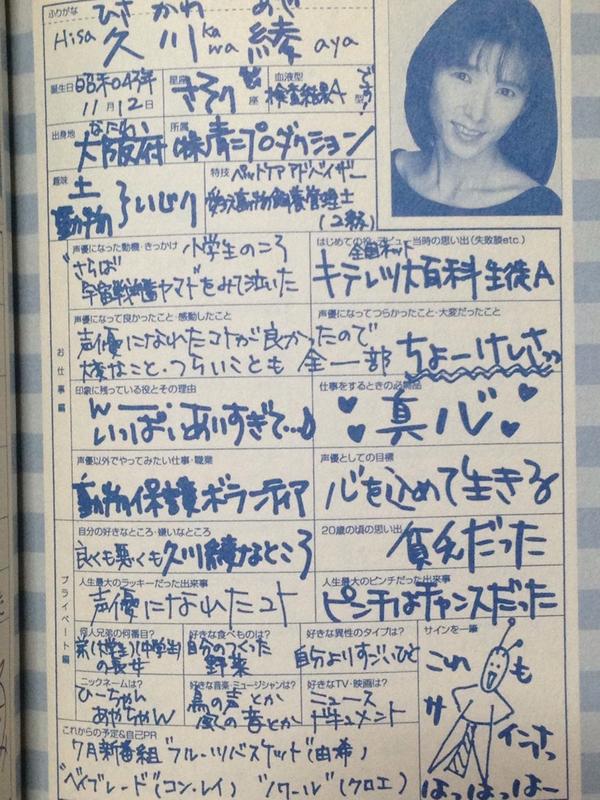 ふりがな ひさ かわ あや
Hisa 久川 kawa 綾 aya
誕生日 昭和043年11月12日
星座 さそり座
血液型 検査結果A型 です!
出身地 なにわい 大阪府
所属 (株)青二プロダクション
趣味 土 動物 }いじり
特技 ペットケアアドバイザー
愛玩動物飼養管理士
(2級)
お仕事編
声優になった動機・きっかけ 小学生のころ
"さらば
宇宙戦艦ヤマト"をみて泣いた
はじめての役・デビュー当時の思い出(失敗談etc.)
全国ネット
キテレツ大百科 生徒A
声優になって良かったこと・感動したこと
声優になれたコトが良かったので
大変なこと・つらいことも 全一部 ちょーけしさっ
声優になってつらかったこと・大変だったこと
印象に残っている役とその理由
んー
いっぱいありすぎて…♪
仕事をするときの必需品
♥ ♥ 真心 ♥ ♥
声優以外でやってみたい仕事・職業
動物保護ボランティア
声優としての目標
心を込めて生きる
自分の好きなところ・嫌いなところ
良くも悪くも久川綾なところ
20歳の頃の思い出
貧乏だった
プライベート編
人生最大のラッキーだった出来事
声優になれたコト
人生最大のピンチだった出来事
ピンチはチャンスだった
何人兄弟の何番目?
弟(大学生)(中学生)
の長女
好きな食べものは?
自分のつくった
野菜
好きな異性のタイプは?
自分よりすごいひと
サインを一筆
これ も
サ インさっ
はっはっはー
ニックネームは?
ひーちゃん
あやちゃん
好きな音楽・ミュージシャンは?
鳥の声とか
風の音とか
好きなTV・映画は?
ニュース
ドキュメント
これからの予定&自己PR
7月新番組"フルーツバスケット"(由希)
"ベイブレード"(コン・レイ) "ノワール"(クロエ)